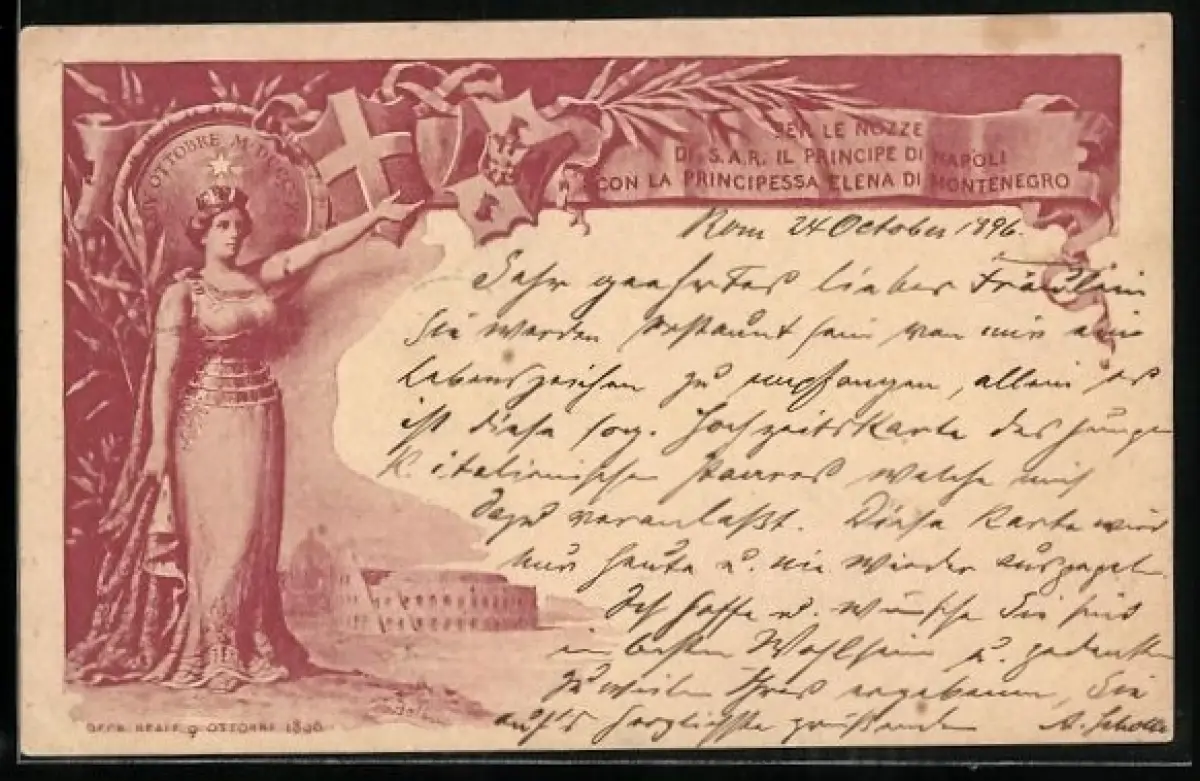 XXIV OTTOBRE MDCCCXCVI
PER LE NOZZE
DI S.A.R. IL PRINCIPE DI NAPOLI
CON LA PRINCIPESSA ELENA DI MONTENEGRO
Rom 24 October 1896.
Sehr geehrtes liebes Fräulein
Sie werden erstaunt sein von mir ein
Lebenszeichen zu empfangen, allein es
ist diese sog. Hochzeitskarte des jungen
K. italienischen Paares welche mich
dazu veranlaßt. Diese Karte wird
nur heute u. nie wieder ausgegeben.
Ich hoffe u. wünsche Sie sind
im besten Wohlsein u. gedenken
zuweilen Ihres ergebenen, Sie
auf's herzlichste grüßenden A.
DECR. REALE 9 OTTOBRE 1896